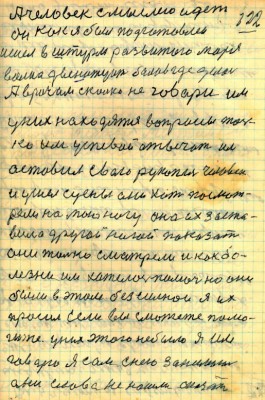 А человек смыслию идет 122
он как я был подготовлен
шел в штурм развитого моря
волна
А врачам сколко не говари им
у них находятся вопросы тол
ко им успевай отвечат им
оставил свою рукопис человек
и ушел они хот посмот
рели на мою ногу она их заста
вила другой ногой показат
они толко смотрели и како бо
лезни им хателос помоч но они
были в этом безсилной я их
просил если вы сможете помо
гите у них этого небыло я им
говарю я сам с нею занимаюс
они слова не нашли сказат